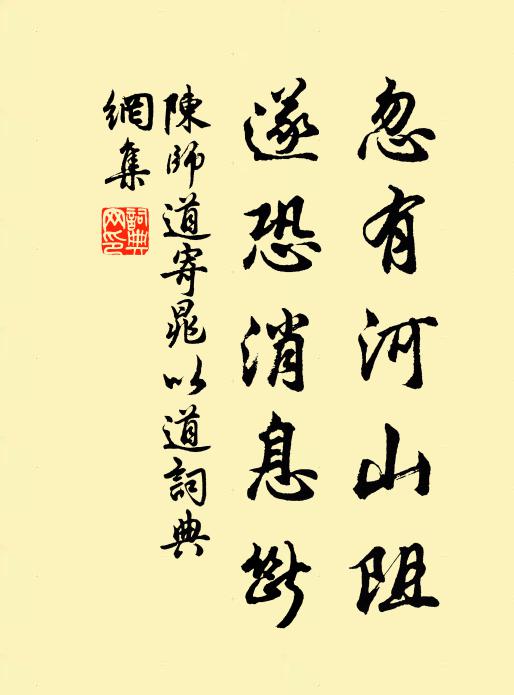 忽有河山阻
遂恐消息斷
陳師道寄晁以道詞典
網集
詞典網印